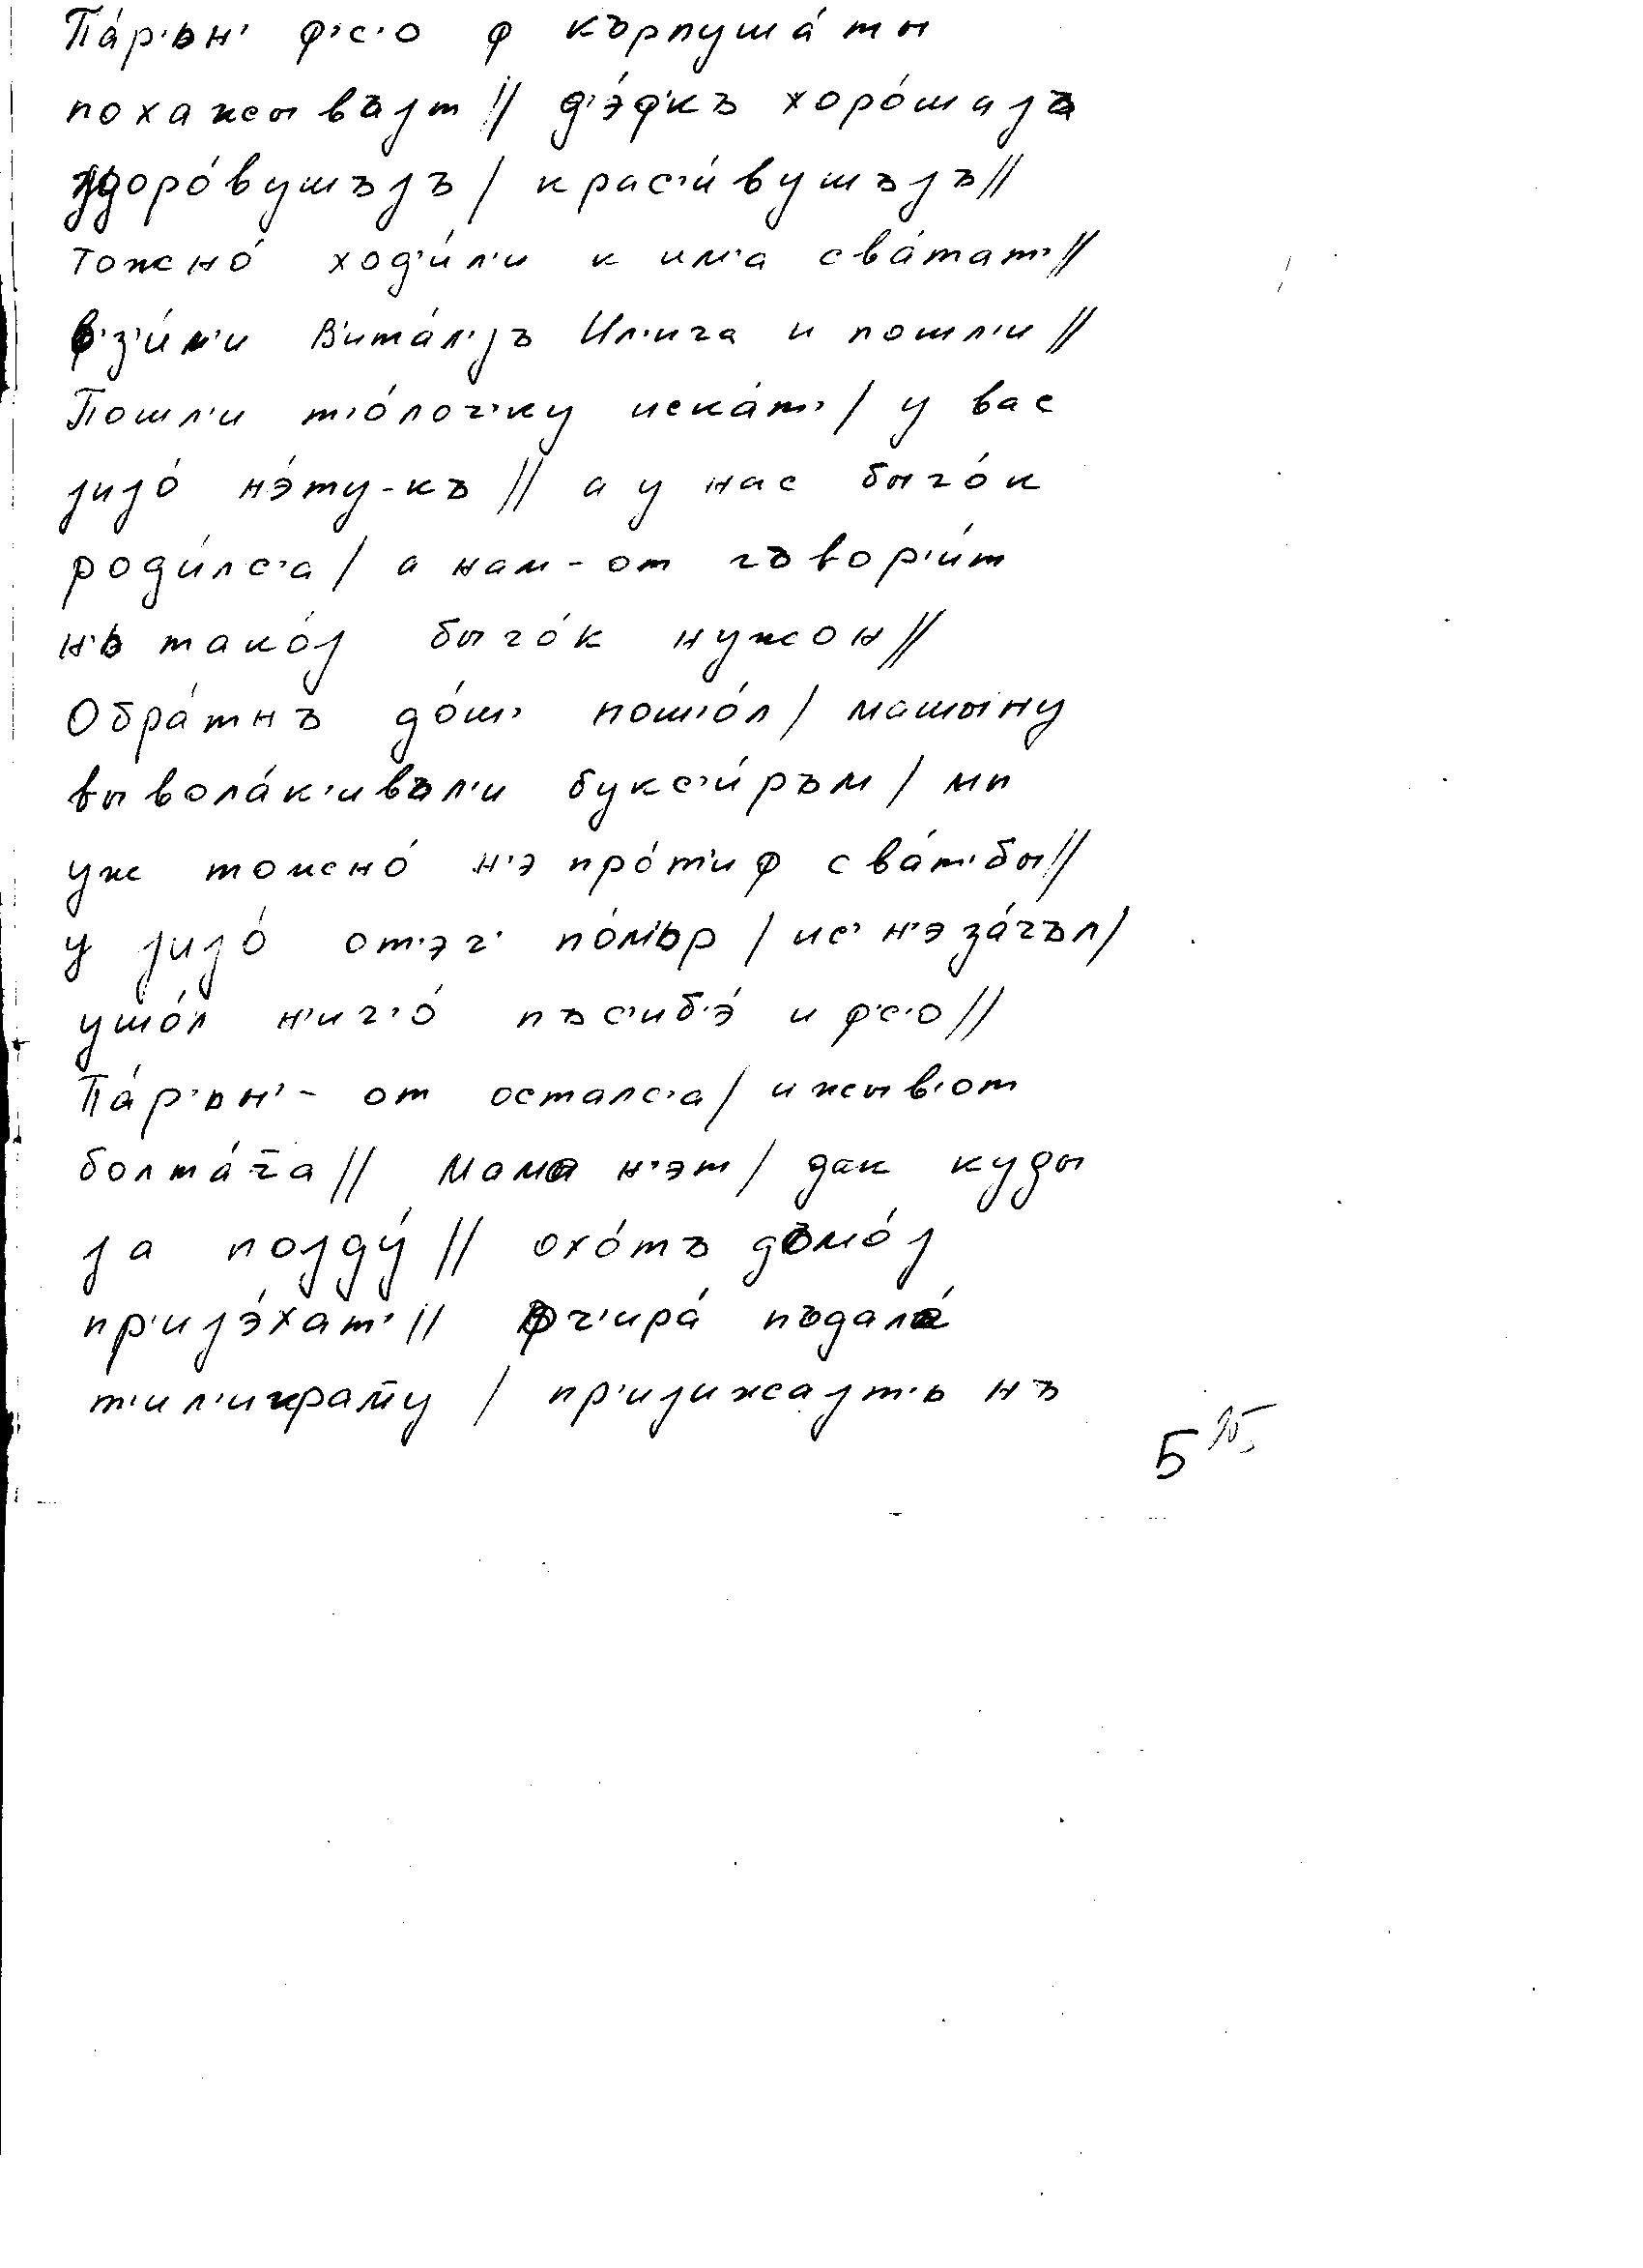 Па́р'ьн' ф'с'о ф кърпуша́ты
похажывъјт // д'э́фкъ хоро́шајъ
здоро́вушъјъ / крас'и́вушъјъ //
Тожно́ ход'и́л'и к им'а сва́тат' //
в'з'и́л'и В'ита́л'јъ Ил'ича и пошл'и //
Пошл'и т'о́лоч'ку иска́т' / у вас
јијо́ нэ́ту-къ // а у нас бычо́к
роди́лс'а / а нам-от гъвор'и́т
н'ь тако́ј бычо́к нужон //
Обра́тнъ до́ш' пош'о́л / машы́ну
вывола́к'ивъл'и букс'и́ръм / мы
уж тожно́ н'э про́т'иф сва́т'бы //
у јијо́ от'эч' по́м'ьр / ис' н'э за́чъл /
ушо́л н'ич'о́ пъс'иб'э́ и ф'с'о //
Па́р'ьн'- от осталс'а / и жыв'от
болта́ч̅а // Мама н'эт / дак куды
ја појду́ // охо́тъ дъмо́ј
пр'ијэ́хат' // Фч'ира́ пъдала́
т'ил'играм̅у / пр'ијижајт'ь нъ
5